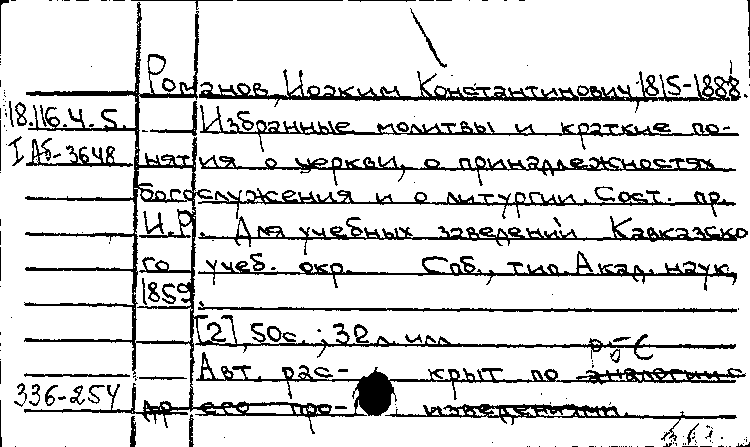 Романов, Иоаким Константинович, 1815-1888.
18.116.4.5. Избранные молитвы и краткие по-
I Аб-3648 нятия о церкви, о принадлежностях
богослужения и о литургии. Сост. пр.
И.Р. Для учебных заведений Кавказско
го учеб. окр. Спб., тип. Акад. наук,
1859.
[2], 50с.; 32л. илл
Авт. рас- крыт по аналогии с
336-254 др его про- изведениями.